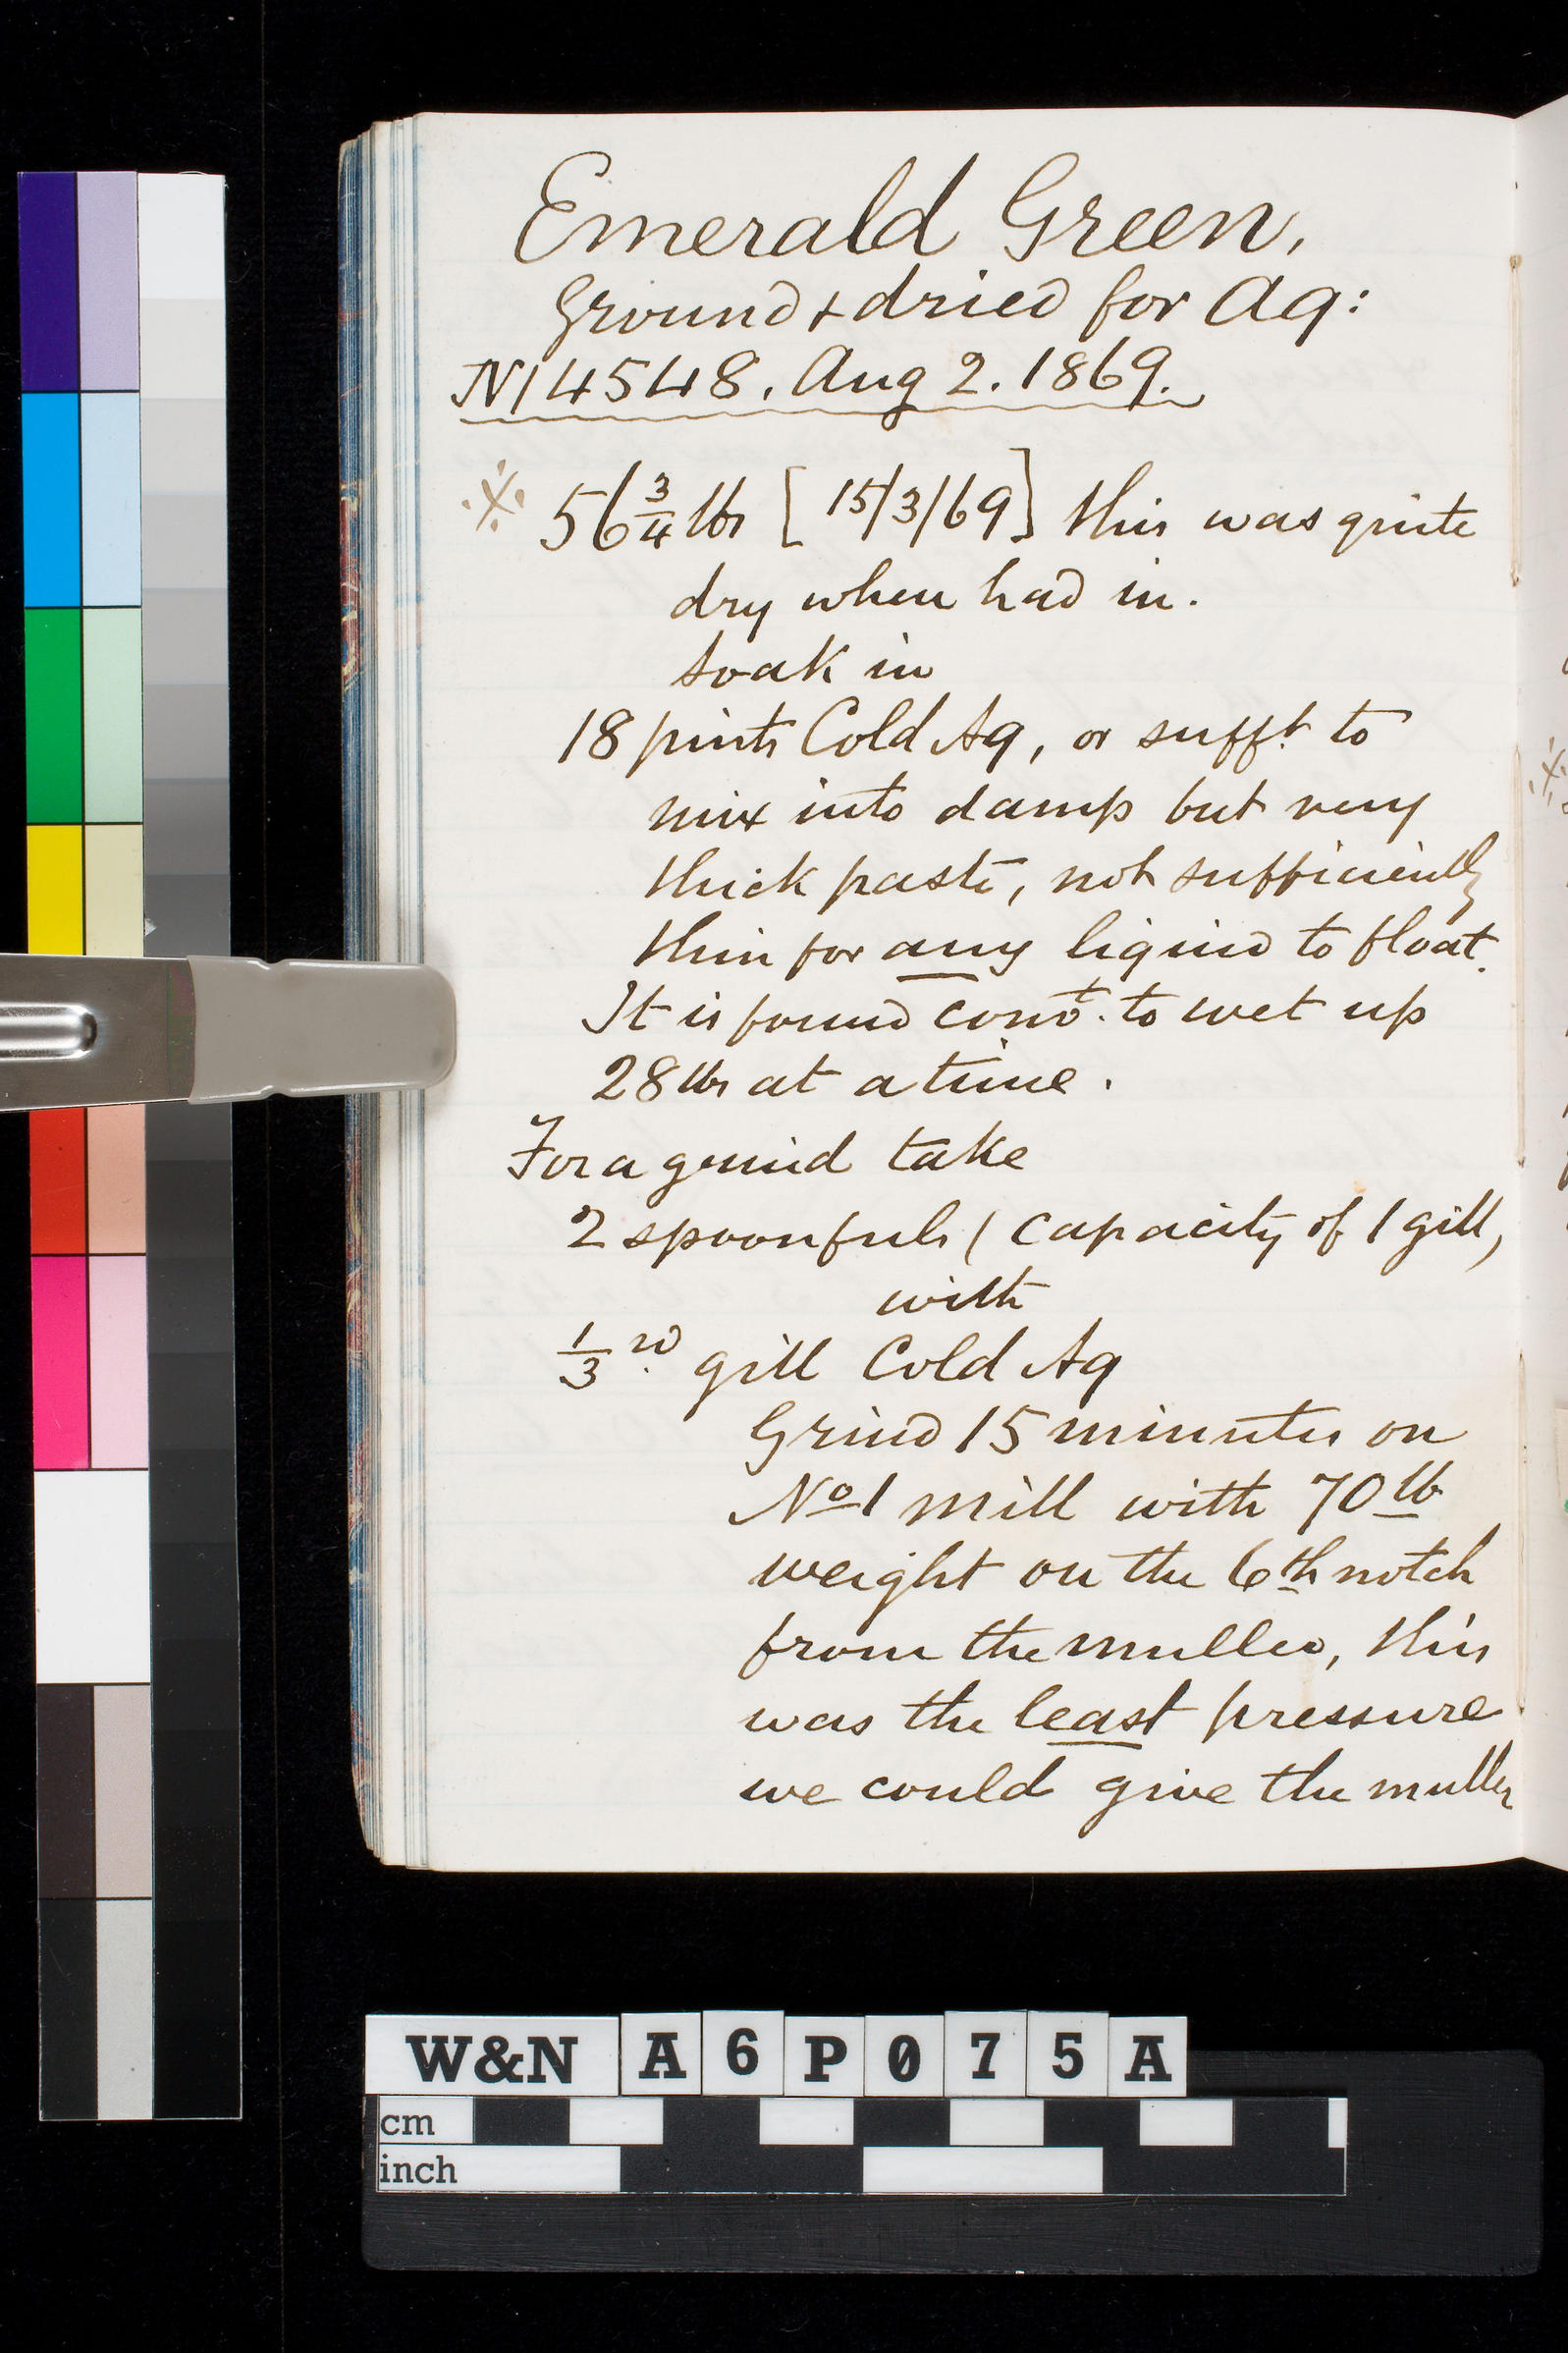 Emerald Green,
Ground & dried for Aq:
N14548. Aug 2. 1869.
※ 56 3/4 lbs [15/3/69] this was quite
dry when had in.
Soak in
18 pints Cold Aq, or sufft. to
mix into damp but very
thick paste, not sufficiently
thin for any liquid to float.
It is found convt. to wet up
28 lbs at a time.
For a grind take
2 spoonfuls (capacity of 1 gill)
with
1/3rd. gill Cold Aq
Grind 15 minutes on
No 1 mill with 70 lb
weight on the 6th notch
from the muller, this
was the least pressure
we could give the muller
W&N A6P075A
cm
inch